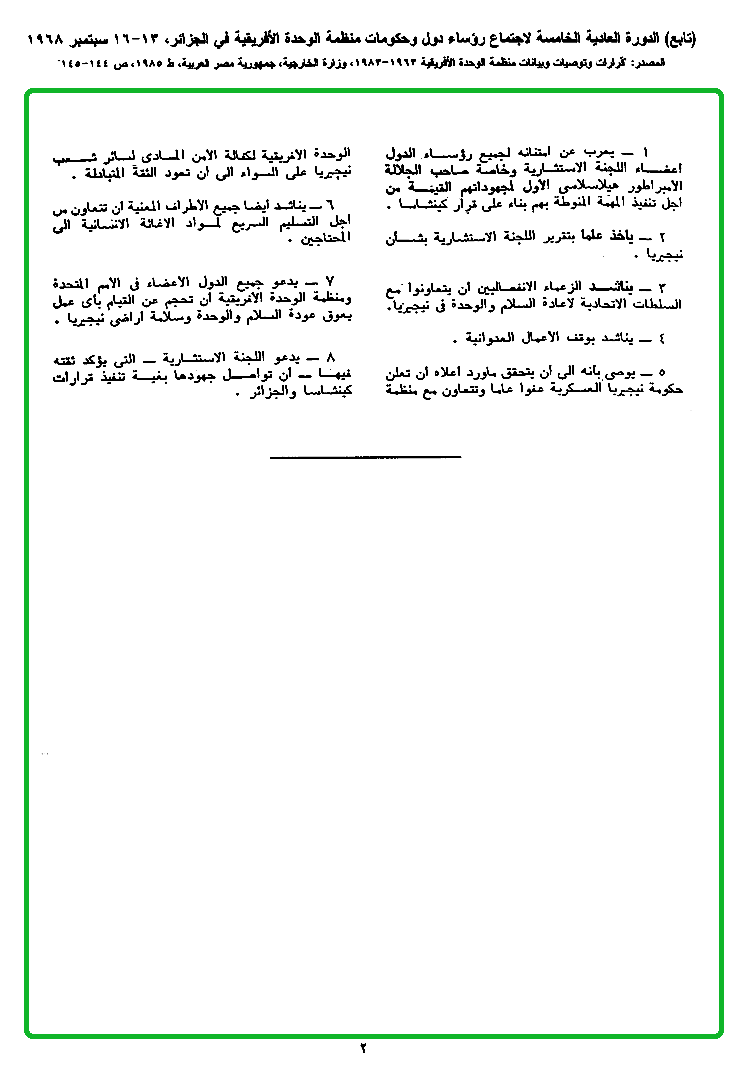 (تابع) الدورة العادية الخامسة لاجتماع رؤساء دول وحكومات منظمة الوحدة الأفريقية في الجزائر، ١٣-١٦ سبتمبر ١٩٦٨
المصدر: قرارات وتوصيات وبيانات منظمة الوحدة الأفريقية ١٩٦٣-١٩٨٣، وزارة الخارجية، جمهورية مصر العربية، ط ١٩٨٥، ص ١٤٤-١٤٥
١ – يعرب عن امتنانه لجميع رؤساء الدول
اعضاء اللجنة الاستشارية وخاصة صاحب الجلالة
الامبراطور هيلاسلاسى الأول لمجهوداتهم القيمة من
اجل تنفيذ المهمة المنوطة بهم بناء على قرار كينشاسا .
٢ – يأخذ علما بتقرير اللجنة الاستشارية بشأن
نيجيريا .
٣ – يناشد الزعماء الانفصاليين ان يتعاونوا مع
السلطات الاتحادية لاعادة السلام والوحدة فى نيجيريا.
٤ – يناشد بوقف الأعمال العدوانية .
٥ – يوصى بأنه الى ان يتحقق ماورد اعلاه ان تعلن
حكومة نيجيريا العسكرية عفوا عاما وتتعاون مع منظمة
الوحدة الافريقية لكفالة الأمن المادى لسائر شعب
نيجيريا على السواء الى ان تعود الثقة المتبادلة .
٦ – يناشد أيضا جميع الأطراف المعنية ان تتعاون من
اجل التسليم السريع لمواد الاغاثة الانسانية الى
المحتاجين .
٧ – يدعو جميع الدول الأعضاء فى الأمم المتحدة
ومنظمة الوحدة الأفريقية ان تحجم عن القيام بأى عمل
يعوق عودة السلام والوحدة وسلامة اراضى نيجيريا .
٨ – يدعو اللجنة الاستشارية – التى يؤكد ثقته
فيها – ان تواصل جهودها بغية تنفيذ قرارات
كينشاسا والجزائر .
٢